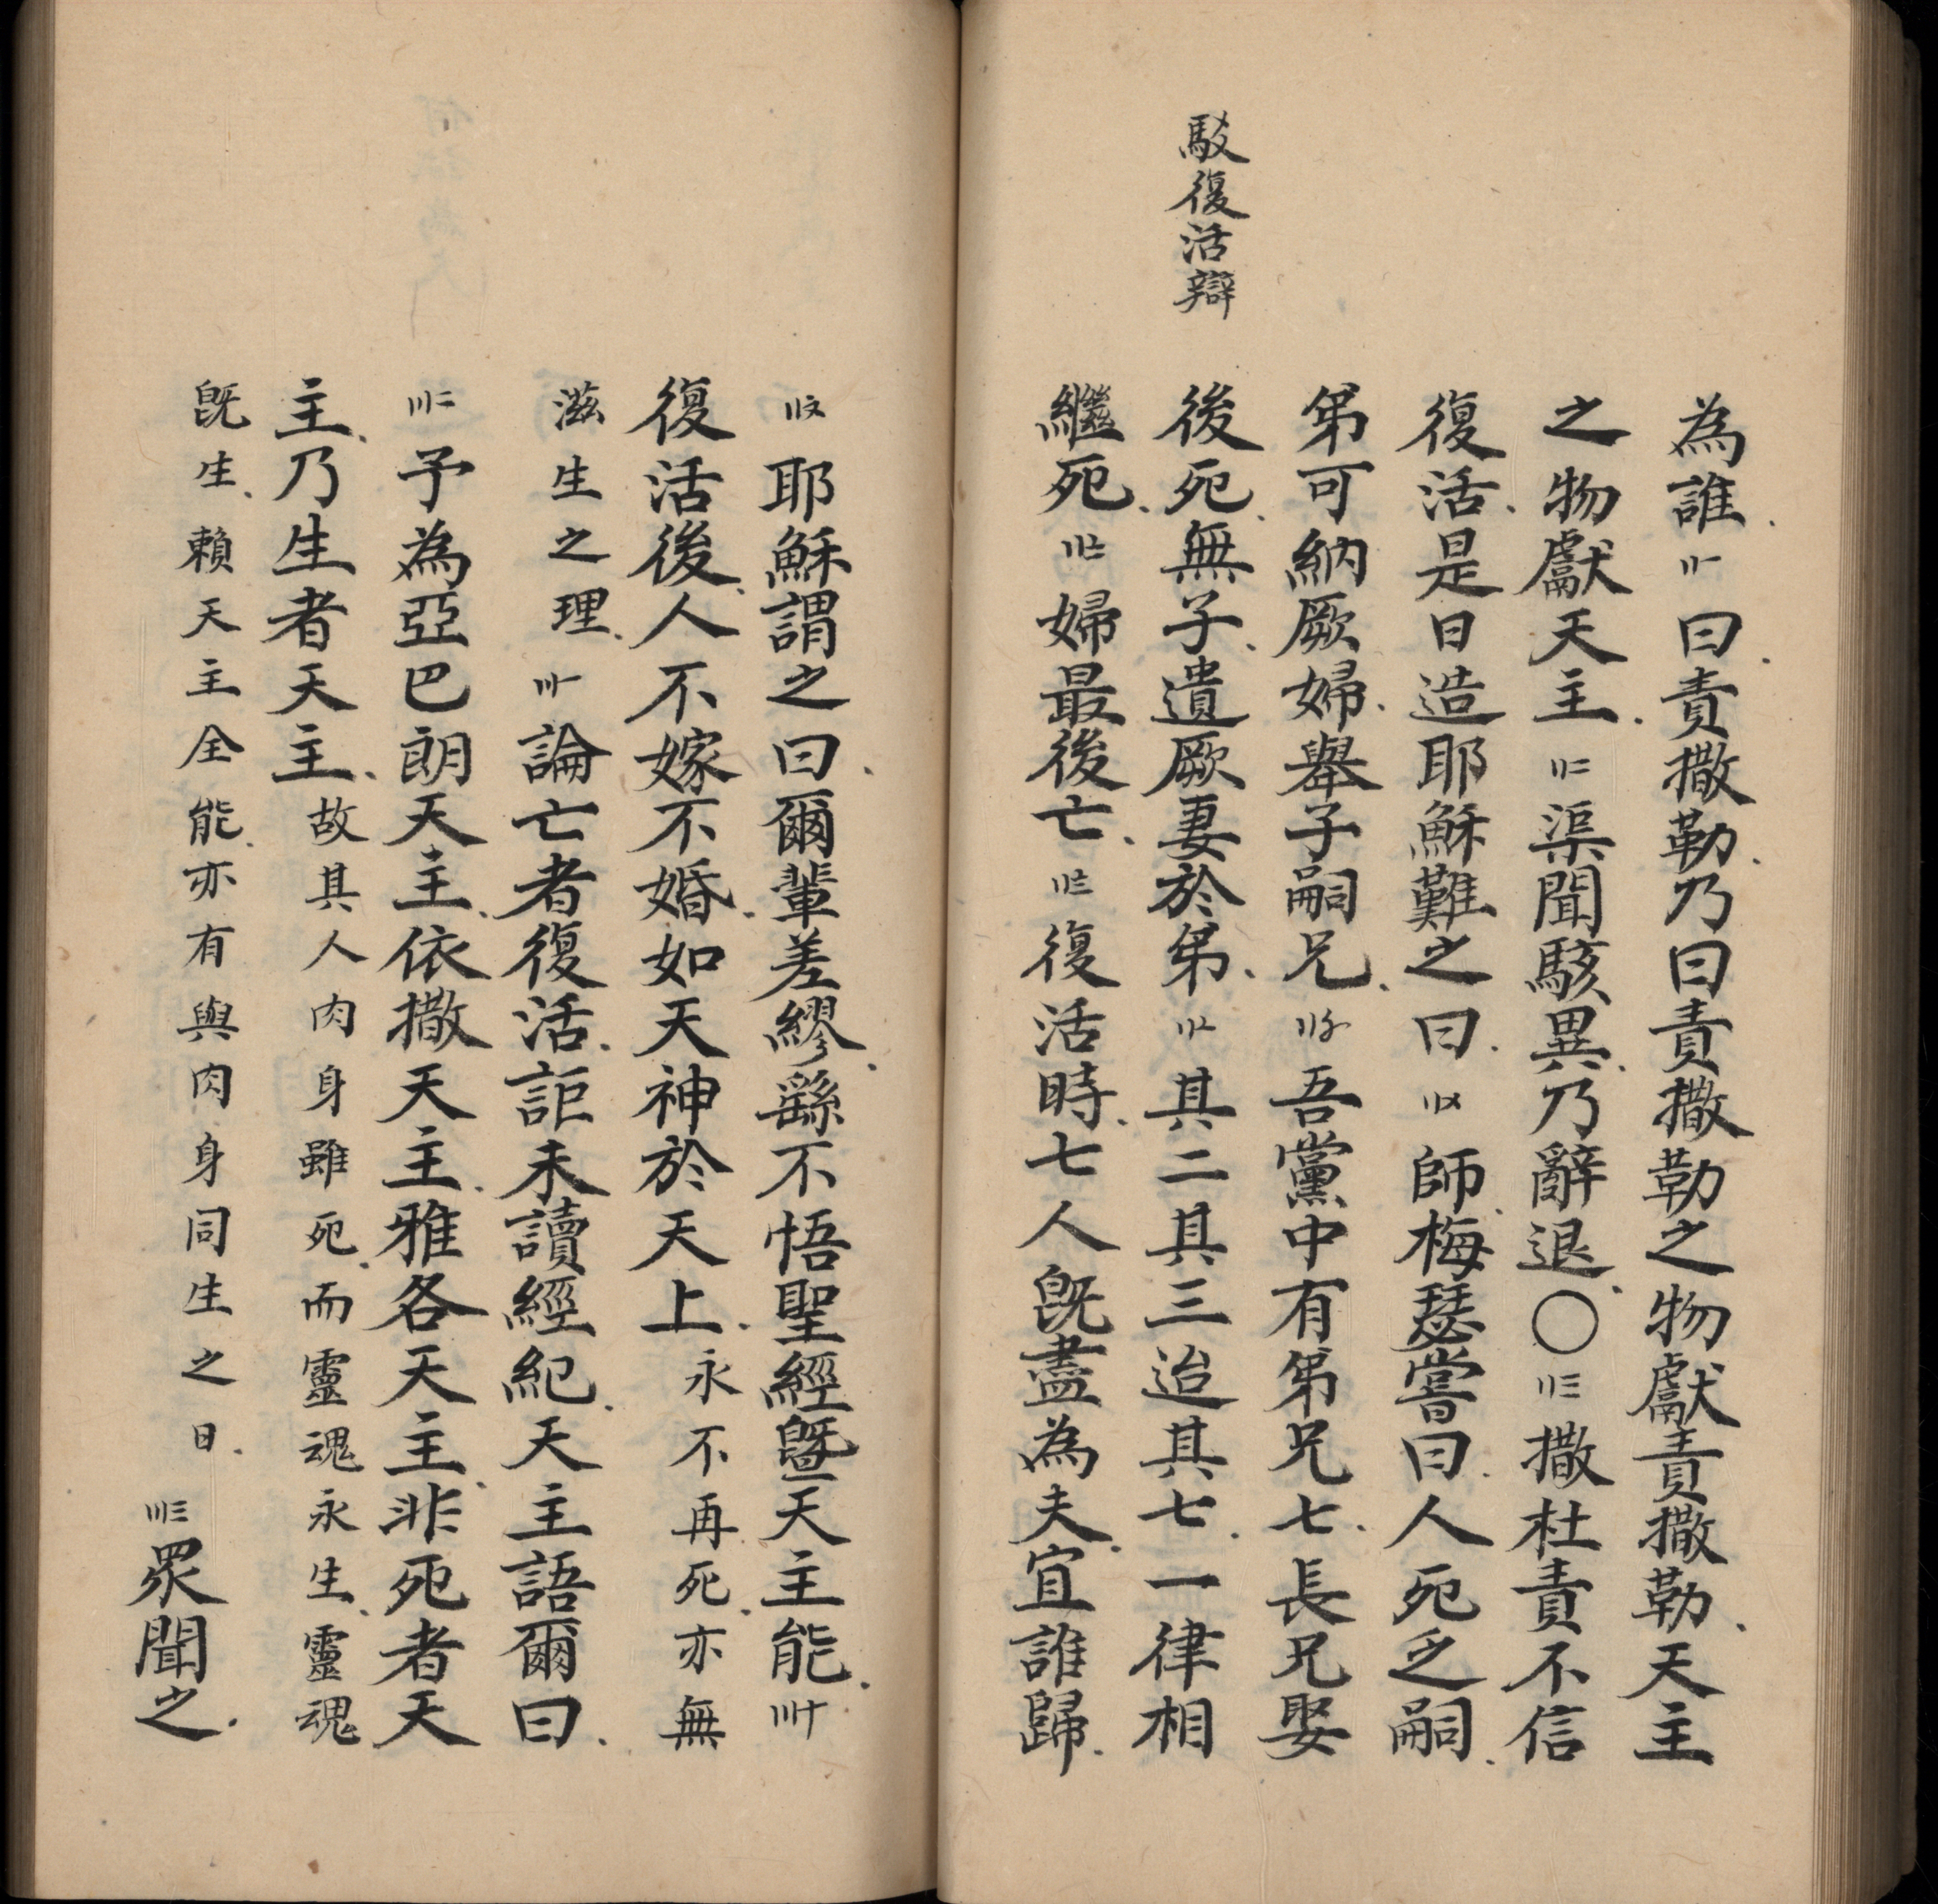 駁復活辯
為誰〢一曰責撒勒乃曰責撒勒之物獻責撒勒天主
之物獻天主〢二渠聞駭異乃辭退〇〢三撒杜責不信
復活是日造耶穌難之曰〢〤師梅瑟嘗曰人死乏嗣
弟可納厥婦舉子嗣兄〢〥吾黨中有弟兄七長兄娶
後死無子遺厥妻於弟〢〦其二其三迨其七一律相
繼死〢〧婦最後亡〢〨復活時七人旣盡為夫宜誰歸
〢〩耶穌謂之曰爾輩差繆繇不悟聖經曁天主能〣十
復活後人不嫁不婚如天神於天上永不再死亦無
滋生之理〣一論亡者復活詎未讀經紀天主語爾曰
〣二予為亞巴朗天主依撒天主雅各天主非死者天
主乃生者天主故其人肉身雖死而靈魂永生靈魂
旣生賴天主全能亦有與肉身同生之日〣三眾聞之